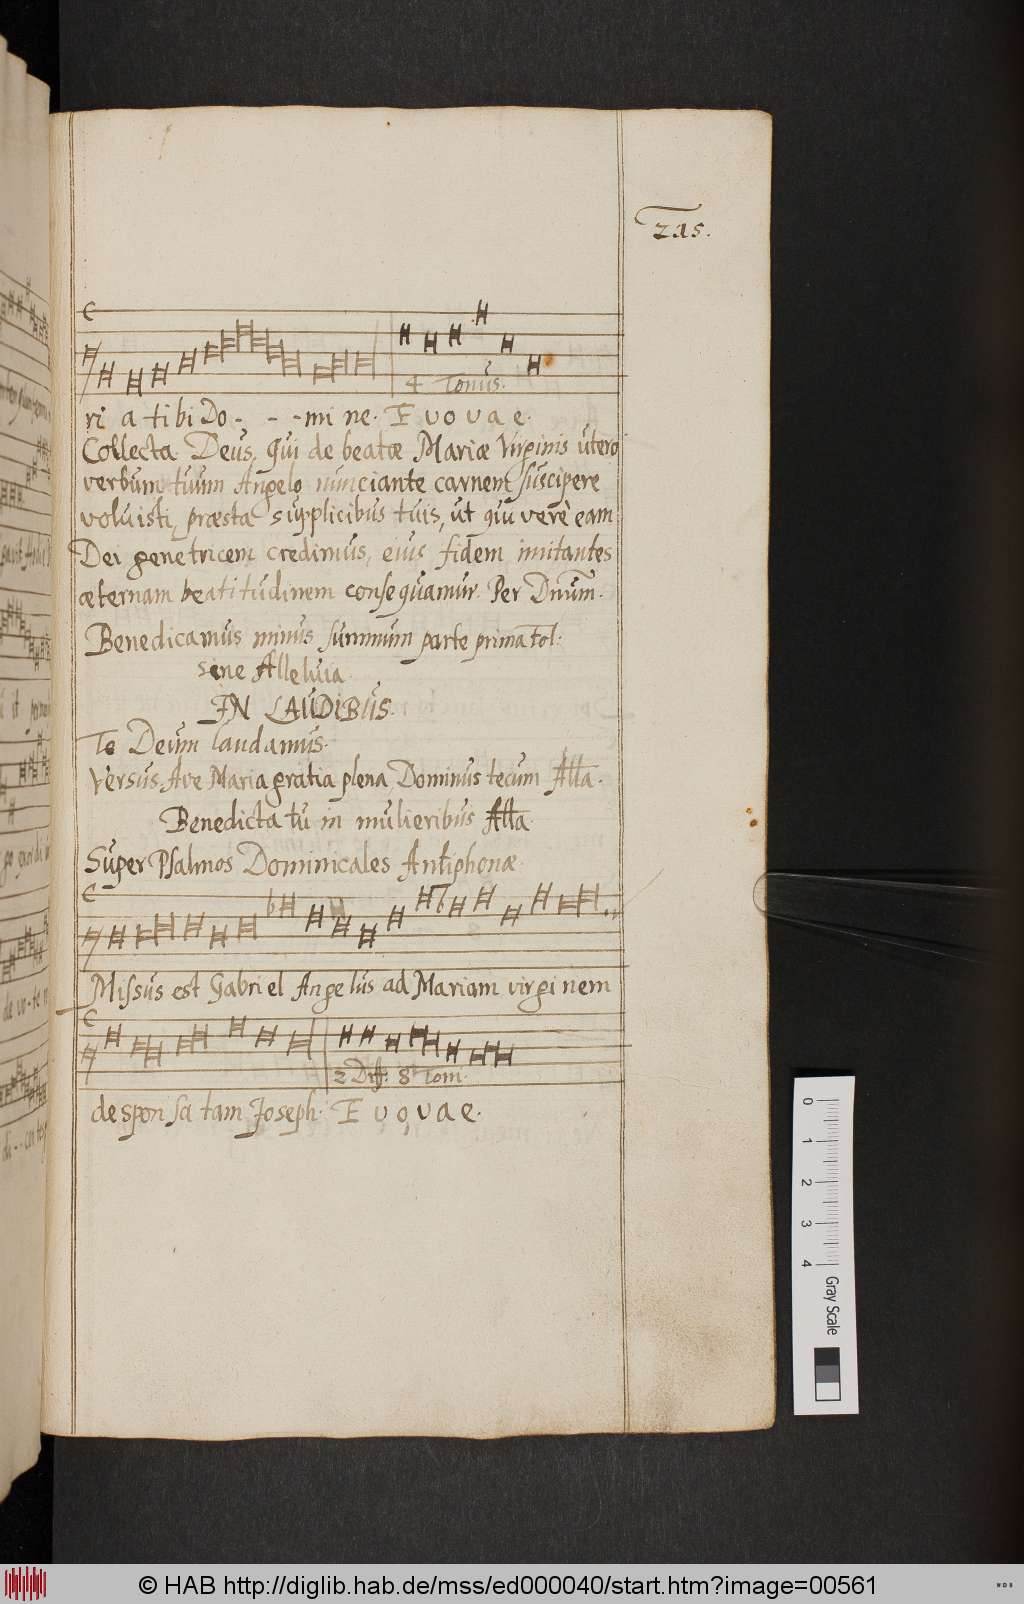 215.
C
4 Tonus.
ri a tibi Do- - -mi ne. E v o v a e.
Collecta Deus, qui de beatæ Mariæ Virginis utero
verbum tuum Angelo nunciante carnem suscipere
voluisti, præsta supplicibus tuis, ut qui verè eam
Dei genetricem credimus, eius fidem imitantes
æternam beatitudinem consequamur. Per Dnum.
Benedicamus minus summum parte prima fol:
sine Alleluia.
IN LAUDIBUS.
Te Deum laudamus.
Versus. Ave Maria gratia plena Dominus tecum Alla.
Benedicta tu in mulieribus Alla
Super Psalmos Dominicales Antiphonæ.
C
Missus est Gabriel Angelus ad Mariam virgi nem
C
2 Diff. 8 Tom.
despon sa tam Joseph. E v o v a e.
0 1 2 3 4 Gray Scale
© HAB http://diglib.hab.de/mss/ed000040/start.htm?image=00561